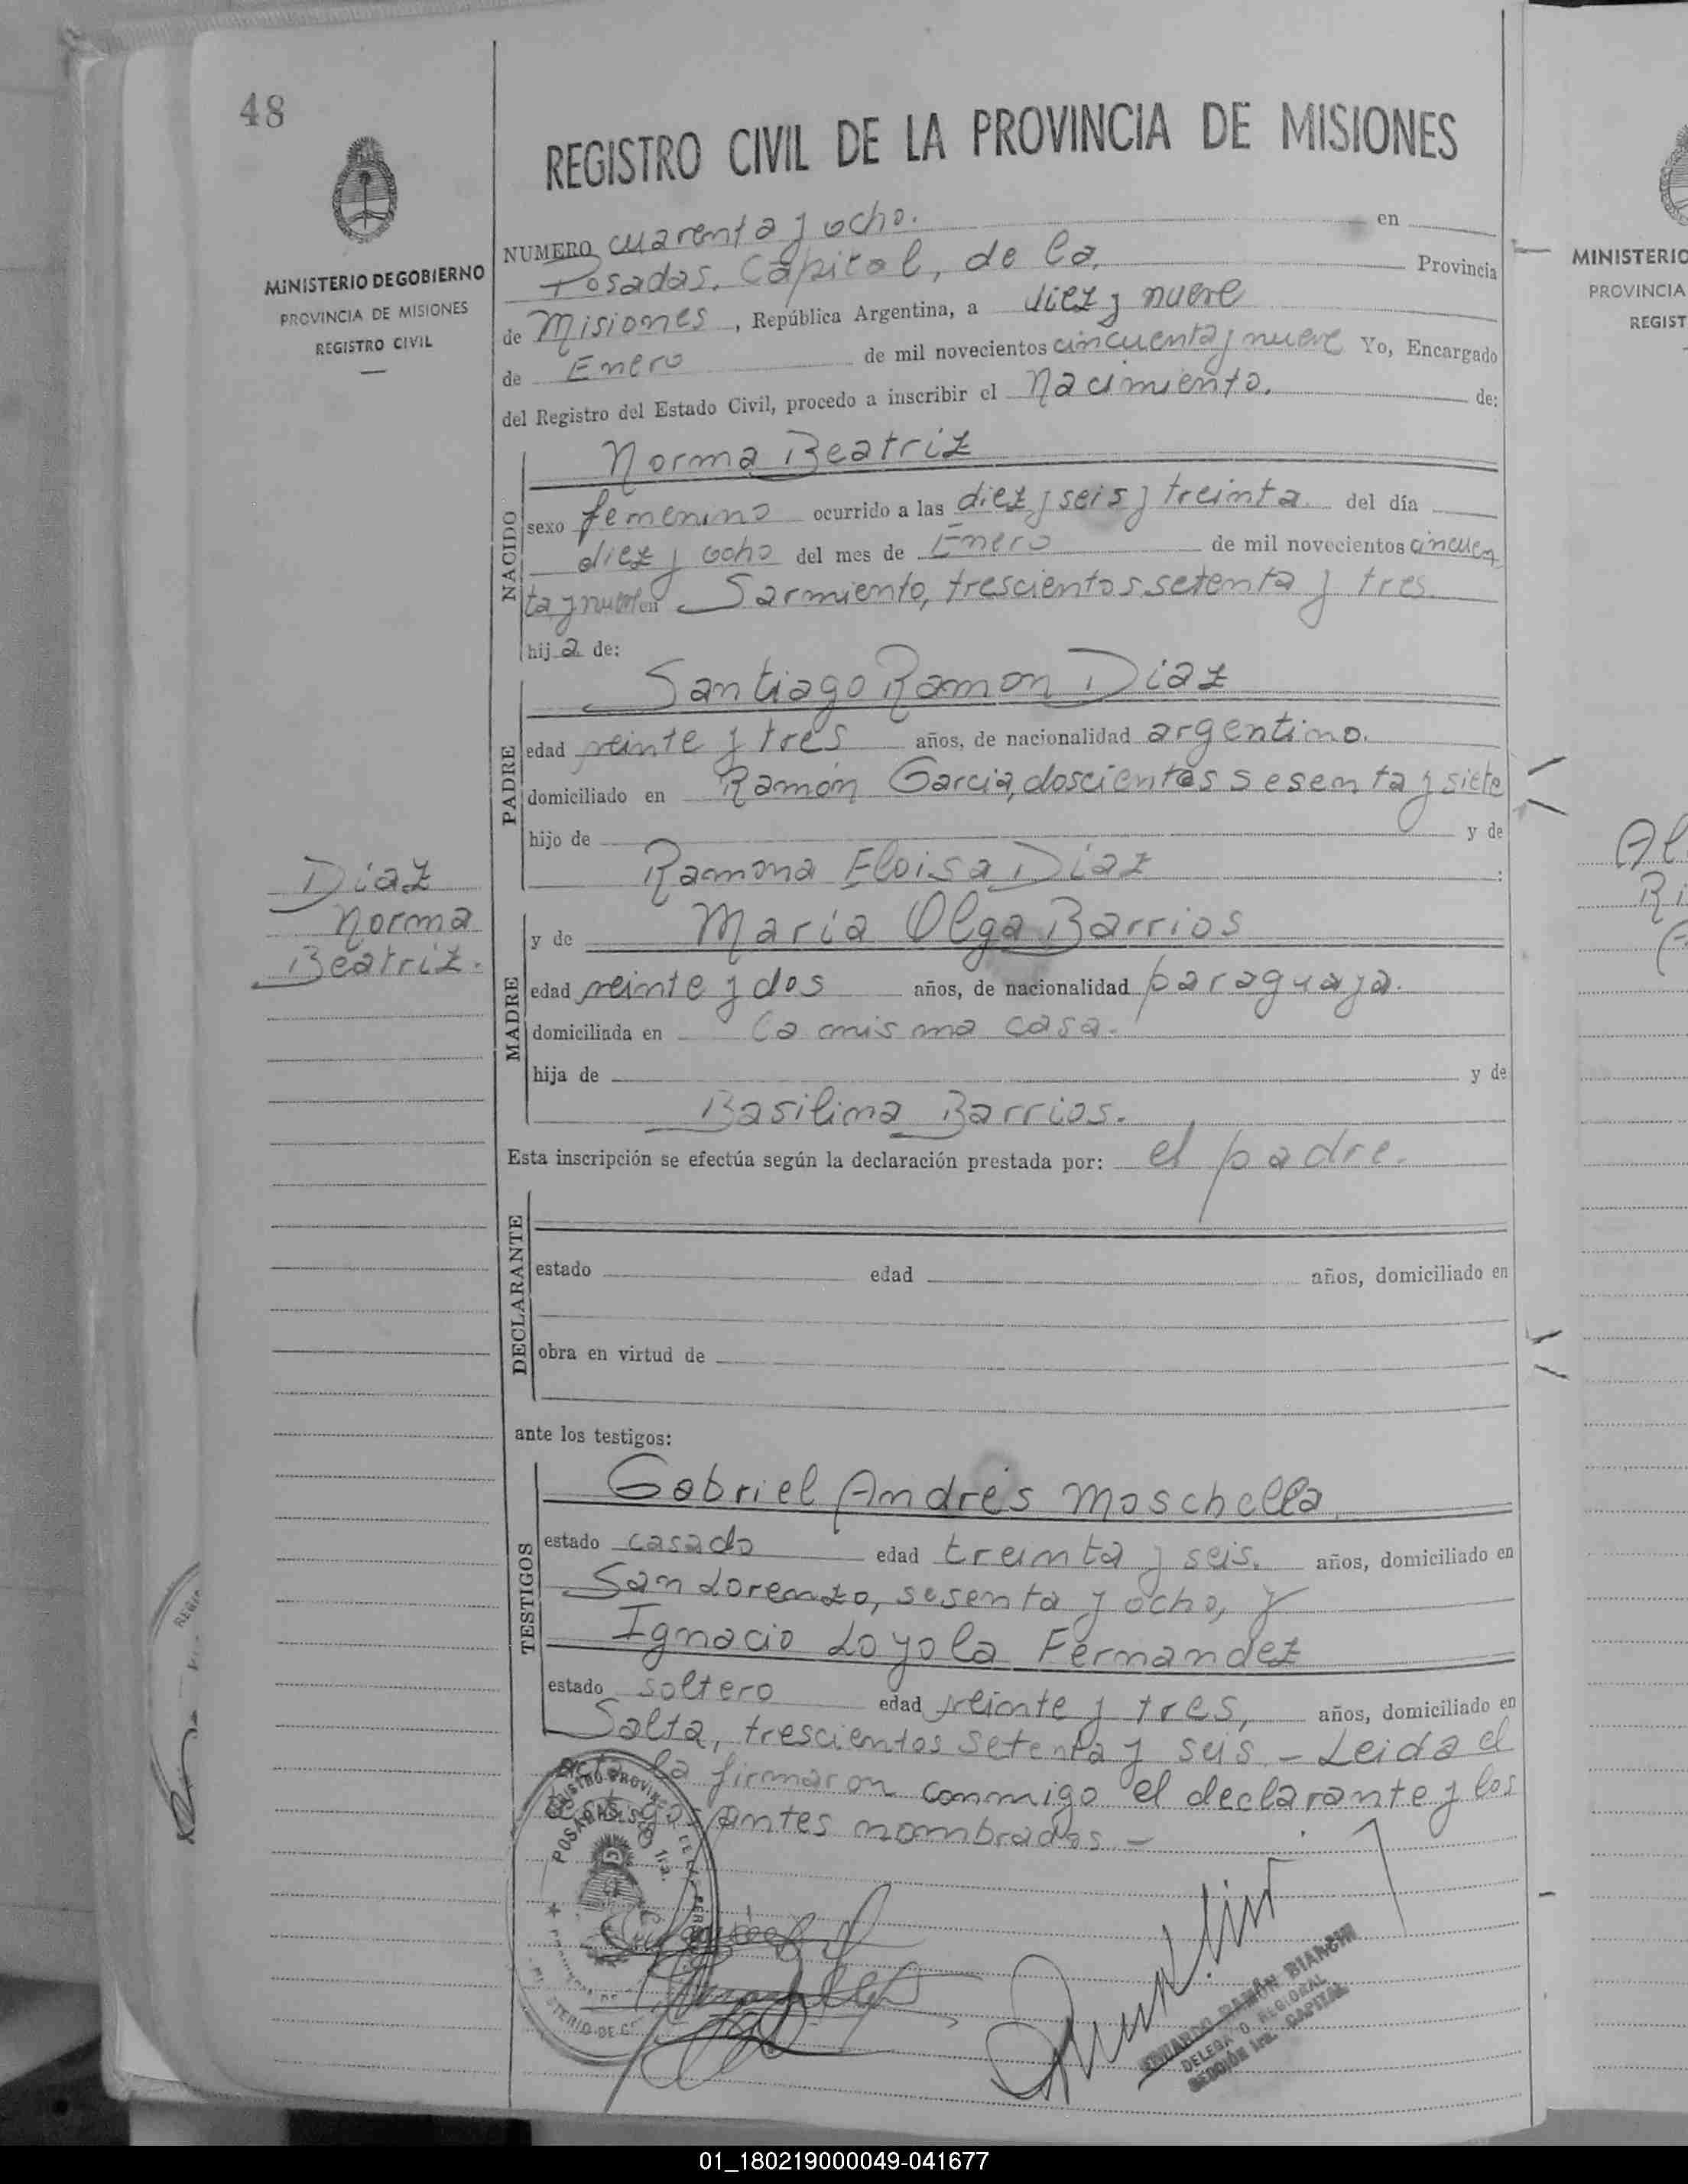 48
REGISTRO CIVIL DE LA PROVINCIA DE MISIONES
MINISTERIO DE GOBIERNO
PROVINCIA DE MISIONES
REGISTRO CIVIL
NUMERO cuarenta y ocho. en
Posadas, Capital, de la, Provincia
de Misiones, República Argentina, a diez y nueve
de Enero de mil novecientos cincuenta y nueve Yo, Encargado
del Registro del Estado Civil, procedo a inscribir el Nacimiento. de:
NACIDO
Norma Beatriz
sexo femenino ocurrido a las diez y seis y treinta del día
diez y ocho del mes de Enero de mil novecientos cincuen
ta y nueve en Sarmiento, trescientos setenta y tres.
hija de:
PADRE
Santiago Ramon Diaz
edad veinte y tres años, de nacionalidad argentino.
domiciliado en Ramón Garcia, doscientos sesenta y siete
hijo de y de
Ramona Eloisa Diaz :
Diaz
Norma
Beatriz.
MADRE
y de Maria Olga Barrios
edad veinte y dos años, de nacionalidad paraguaya.
domiciliada en la misma casa.
hija de y de
Basilina Barrios.
Esta inscripción se efectúa según la declaración prestada por: el padre.
DECLARANTE
estado edad años, domiciliado en
obra en virtud de
ante los testigos:
TESTIGOS
Gabriel Andrés Moschella,
estado casado edad treinta y seis. años, domiciliado en
San Lorenzo, sesenta y ocho, y
Ignacio Loyola Fernandez
estado soltero edad veinte y tres, años, domiciliado en
Salta, trescientos setenta y seis. - Leida el
acta la firmaron conmigo el declarante y los
testigos antes nombrados. -
POSADAS
EDUARDO RAMÓN BIANCHI
DELEGADO REGIONAL
SECCIÓN 1ra. CAPITAL
MINISTERIO
PROVINCIA
REGIST
Al
Ri
01_180219000049-041677